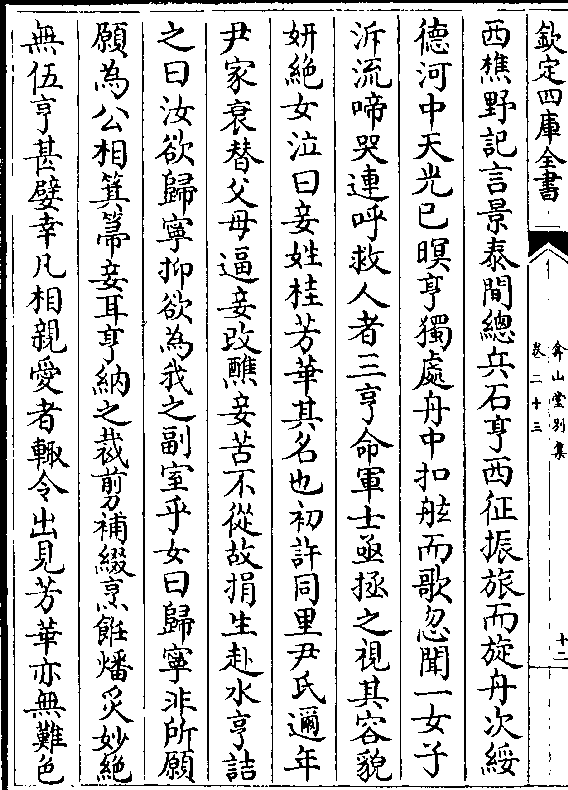 欽定四庫全書
弇山堂別集
卷二十三
十二
西樵野記言景泰間總兵石亨西征振旅而旋舟次綏
德河中天光已暝亨獨處舟中扣舷而歌忽聞一女子
泝流啼哭連呼救人者三亨命軍士亟拯之視其容貌
妍絶女泣曰妾姓桂芳華其名也初許同里尹氏邇年
尹家衰替父母逼妾改醮妾苦不從故捐生赴水亨詰
之曰汝欲歸寧抑欲為我之副室乎女曰歸寧非所願
願為公相箕箒妾耳亨納之裁剪補綴烹飪燔炙妙絶
無伍亨甚嬖幸凡相親愛者輙令出見芳華亦無難色